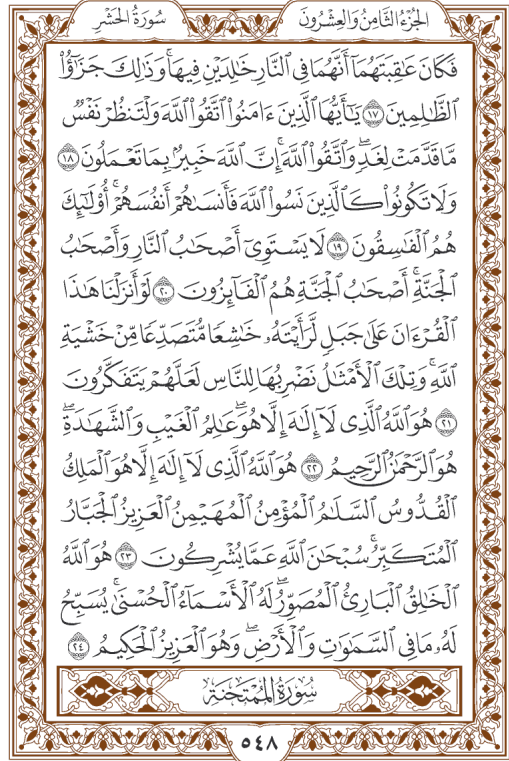 الجُزْءُ الثَّامِنُ وَالعِشْرُونَ
سُورَةُ الحَشْرِ
فَكَانَ عَٰقِبَتَهُمَآ أَنَّهُمَا فِي ٱلنَّارِ خَٰلِدَيْنِ فِيهَاۚ وَذَٰلِكَ جَزَٰٓؤُاْ
ٱلظَّٰلِمِينَ ١٧ يَٰٓأَيُّهَا ٱلَّذِينَ ءَامَنُواْ ٱتَّقُواْ ٱللَّهَ وَلْتَنظُرْ نَفْسٌ
مَّا قَدَّمَتْ لِغَدٍۖ وَٱتَّقُواْ ٱللَّهَۚ إِنَّ ٱللَّهَ خَبِيرُۢ بِمَا تَعْمَلُونَ ١٨
وَلَا تَكُونُواْ كَٱلَّذِينَ نَسُواْ ٱللَّهَ فَأَنسَىٰهُمْ أَنفُسَهُمْۚ أُوْلَٰٓئِكَ
هُمُ ٱلْفَٰسِقُونَ ١٩ لَا يَسْتَوِيٓ أَصْحَٰبُ ٱلنَّارِ وَأَصْحَٰبُ
ٱلْجَنَّةِۚ أَصْحَٰبُ ٱلْجَنَّةِ هُمُ ٱلْفَآئِزُونَ ٢٠ لَوْ أَنزَلْنَا هَٰذَا
ٱلْقُرْءَانَ عَلَىٰ جَبَلٍ لَّرَأَيْتَهُۥ خَٰشِعًا مُّتَصَدِّعًا مِّنْ خَشْيَةِ
ٱللَّهِۚ وَتِلْكَ ٱلْأَمْثَٰلُ نَضْرِبُهَا لِلنَّاسِ لَعَلَّهُمْ يَتَفَكَّرُونَ
٢١ هُوَ ٱللَّهُ ٱلَّذِي لَآ إِلَٰهَ إِلَّا هُوَۖ عَٰلِمُ ٱلْغَيْبِ وَٱلشَّهَٰدَةِۖ
هُوَ ٱلرَّحْمَٰنُ ٱلرَّحِيمُ ٢٢ هُوَ ٱللَّهُ ٱلَّذِي لَآ إِلَٰهَ إِلَّا هُوَ ٱلْمَلِكُ
ٱلْقُدُّوسُ ٱلسَّلَٰمُ ٱلْمُؤْمِنُ ٱلْمُهَيْمِنُ ٱلْعَزِيزُ ٱلْجَبَّارُ
ٱلْمُتَكَبِّرُۚ سُبْحَٰنَ ٱللَّهِ عَمَّا يُشْرِكُونَ ٢٣ هُوَ ٱللَّهُ
ٱلْخَٰلِقُ ٱلْبَارِئُ ٱلْمُصَوِّرُۖ لَهُ ٱلْأَسْمَآءُ ٱلْحُسْنَىٰۚ يُسَبِّحُ
لَهُۥ مَا فِي ٱلسَّمَٰوَٰتِ وَٱلْأَرْضِۖ وَهُوَ ٱلْعَزِيزُ ٱلْحَكِيمُ ٢٤
سُورَةُ المُمْتَحنَةِ
٥٤٨